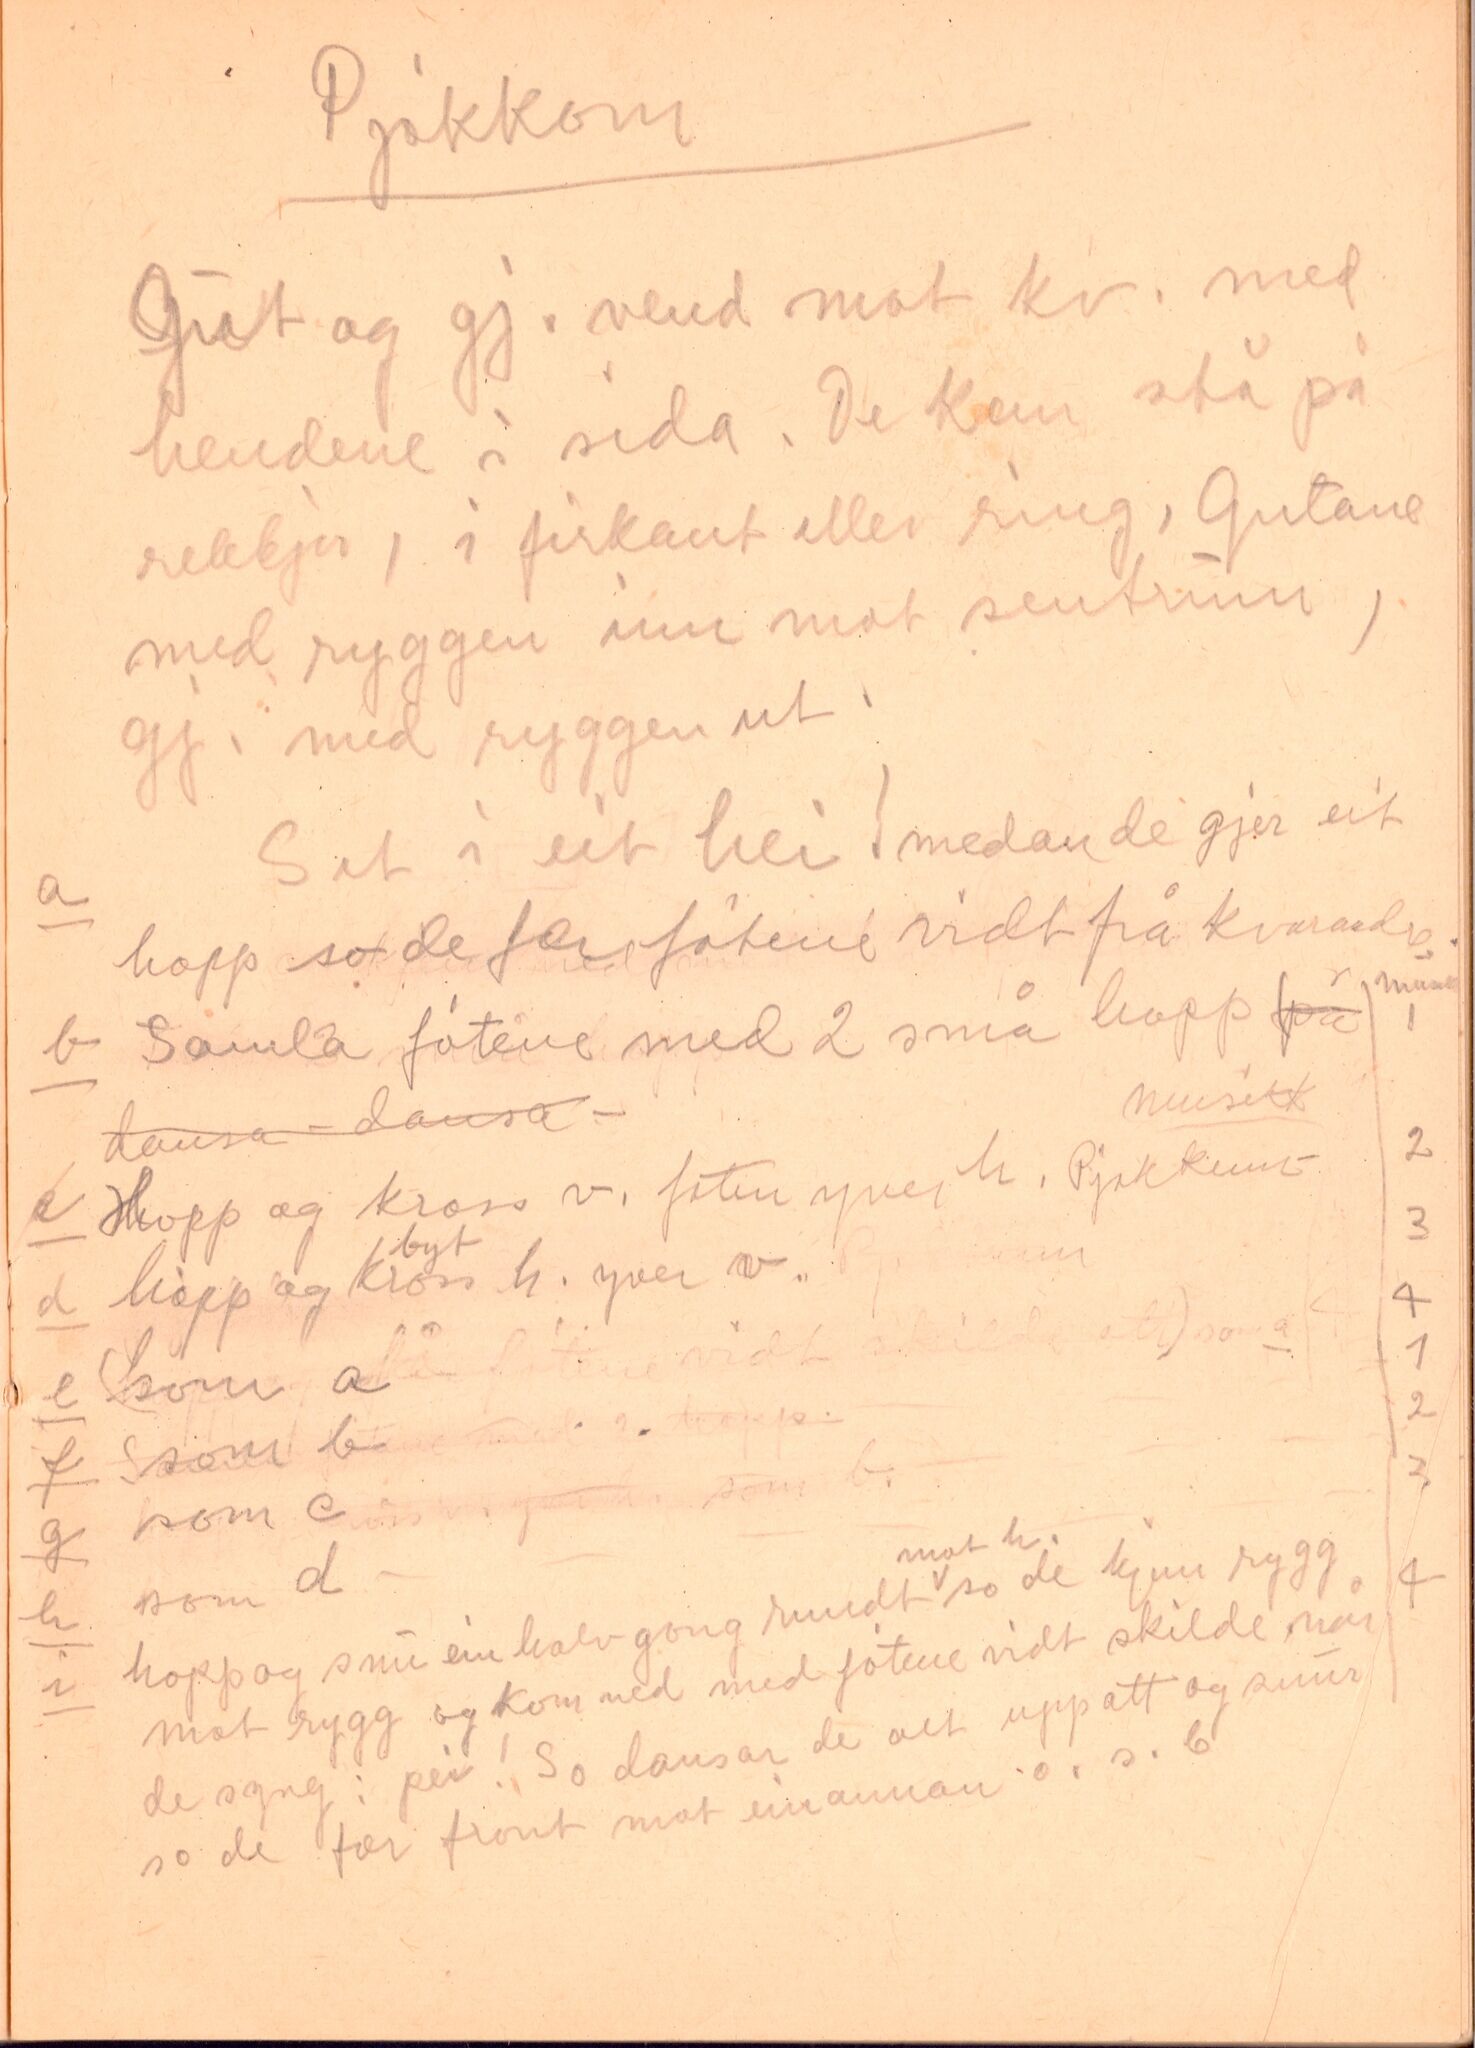 Pjåkkom
Gut og gj. vend mot kv. med
hendene i sida. De kan stå på
rekkjer, i firkant eller ring, Gutane
med ryggen inn mot sentrum,
gj. med ryggen ut.
a Set i eit hei! medan de gjer eit
hopp so de fær føtene vidt frå kvarandre.
b Samla føtene med 2 små hopp (på musikk 1
dansa - dansa -
musikk 2
c Hopp og kross v. foten yver h. Pjåkkum 3
byt
d hopp og kross h. yver v. 4
e som a 1
f som b 2
g som c 3
h som d - 4
mot h.
i hopp og snu ein halv gong rundt so de kjem rygg
mot rygg og kom ned med føtene vidt skilde når
de syng: pei! So dansar de alt uppatt og snur
so de fær front mot einannan o. s. b